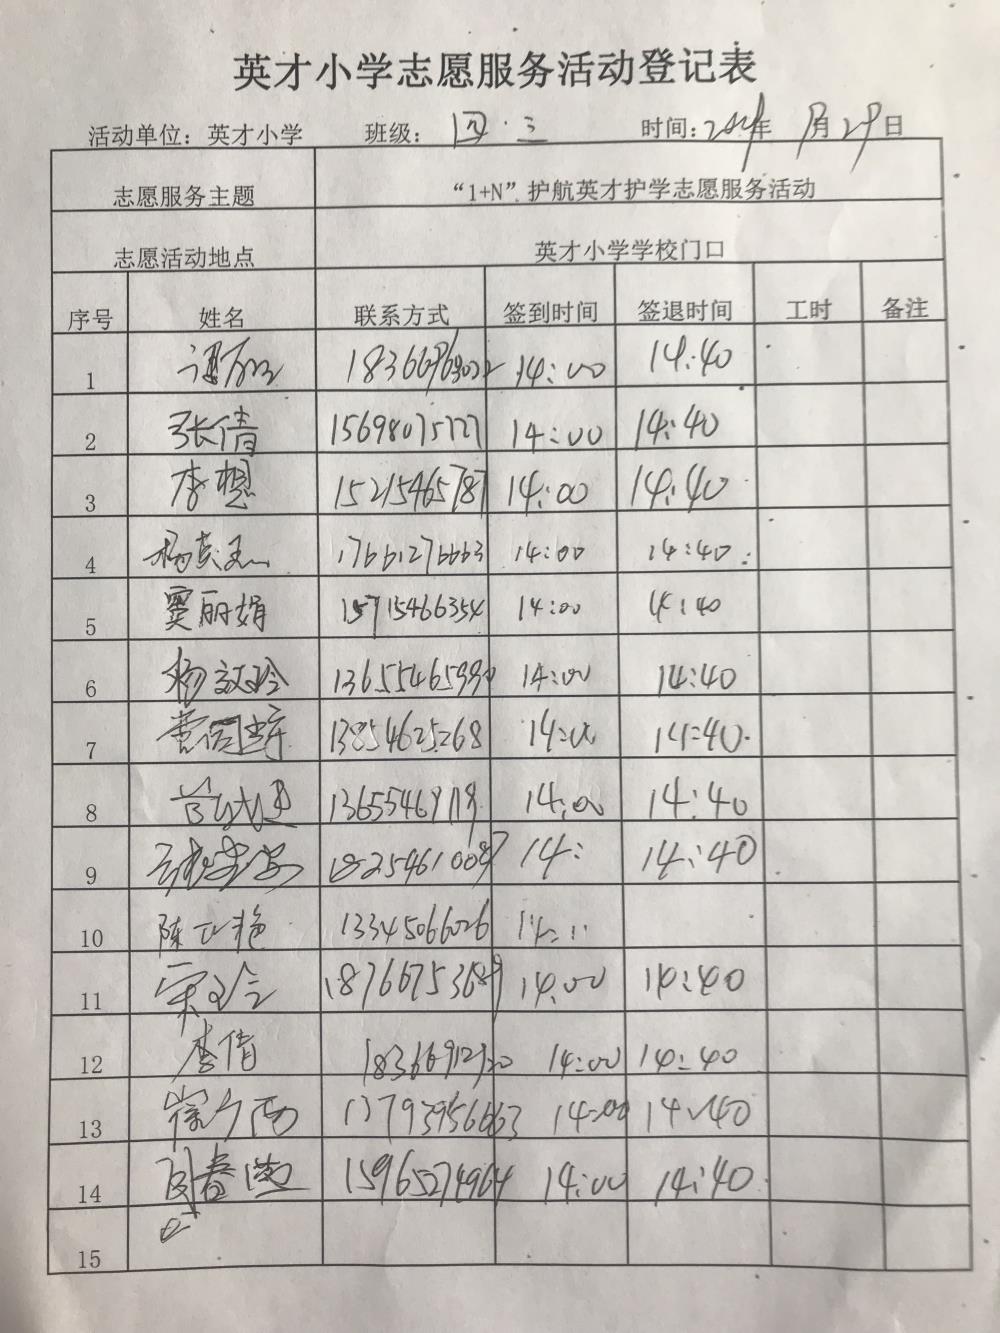 英才小学志愿服务活动登记表
活动单位：英才小学 班级：四·三 时间： 年 月29日
志愿服务主题 “1+N”护航英才护学志愿服务活动
志愿活动地点 英才小学学校门口
序号 姓名 联系方式 签到时间 签退时间 工时 备注
1 14:00 14:40
2 张倩 14:00 14:40
3 李想 15215465787 14:00 14:40
4 17661276663 14:00 14:40
5 窦丽娟 15715466354 14:00 14:40
6 杨文玲 14:00 14:40
7 13854625268 14:00 14:40
8 14:00 14:40
9 14: 14:40
10 陈 艳 13345066026
11 宋玲 18766753689 14:00 14:40
12 李倩 14:00 14:40
13 13793956663 14:00 14:40
14 15965274964 14:00 14:40
15